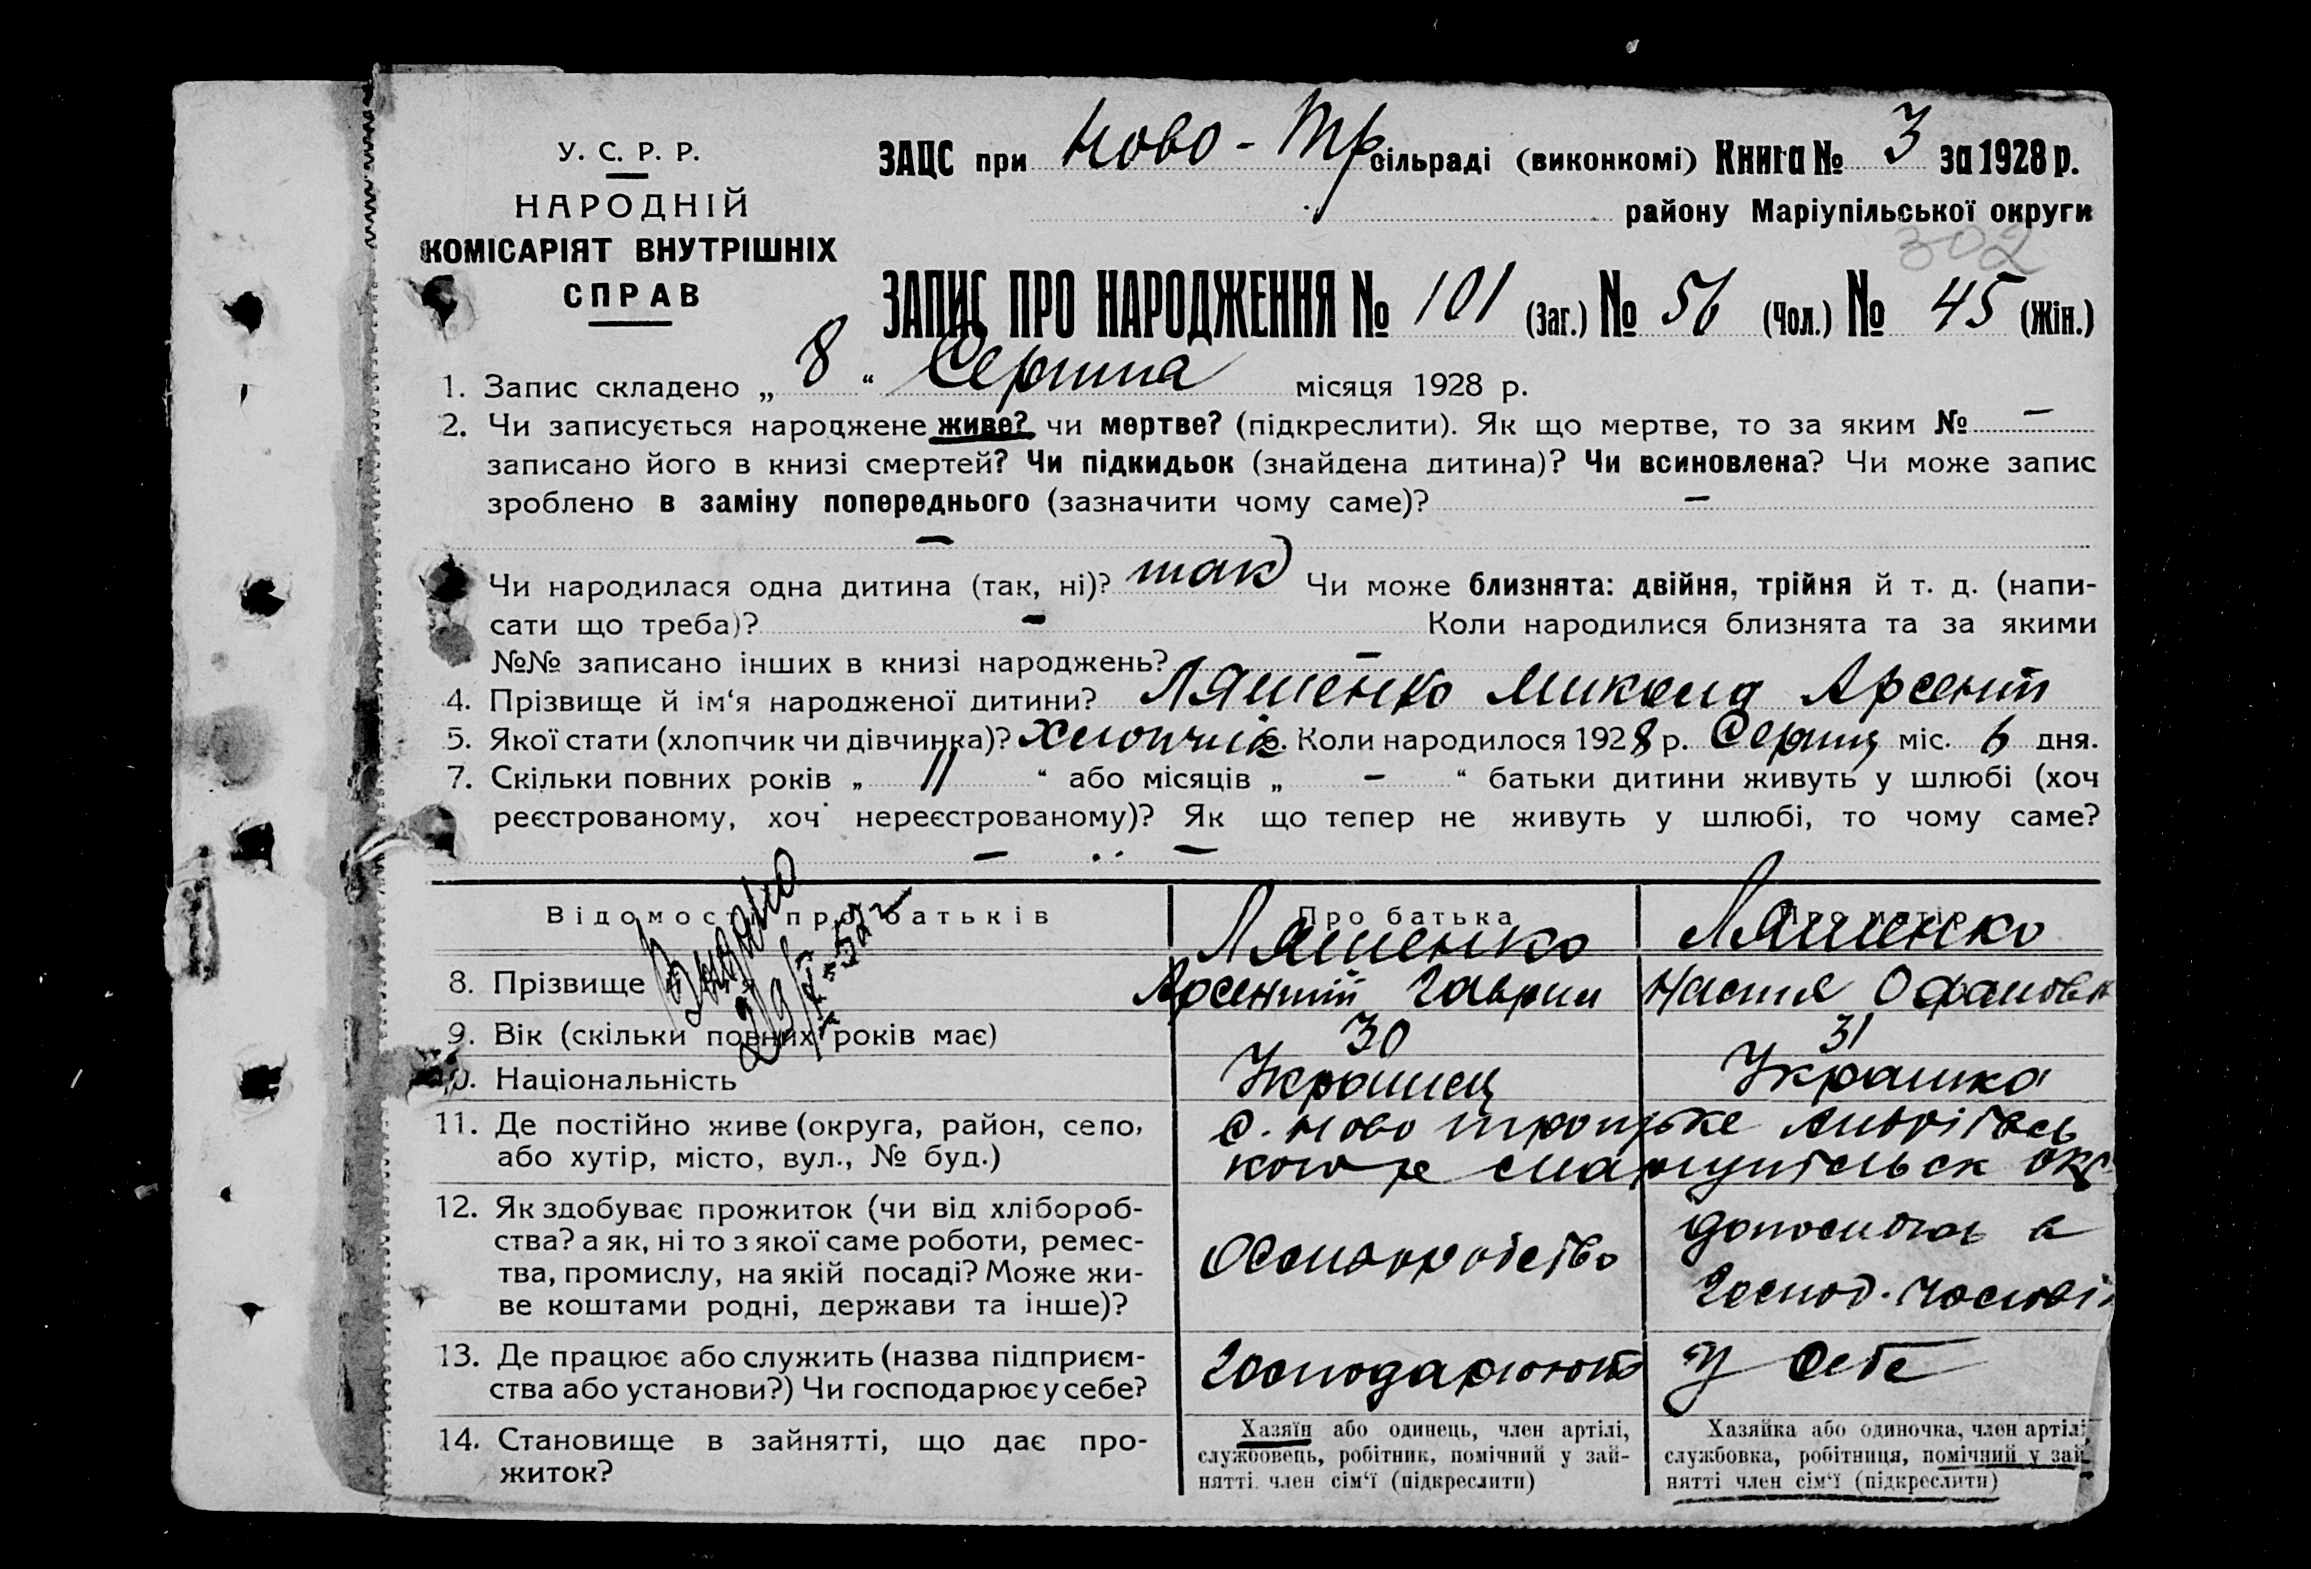 У. С. Р. Р.
НАРОДНІЙ
КОМІСАРІЯТ ВНУТРІШНІХ
СПРАВ
ЗАЦС при Ново-Тр сільраді (виконкомі) Книга № 3 за 1928 р.
району Маріупільської округи
302
ЗАПИС ПРО НАРОДЖЕННЯ № 101 (Заг.) № 56 (Чол.) № 45 (Жін.)
1. Запис складено „ 8 “ Серпня місяця 1928 р.
2. Чи записується народжене живе? чи мертве? (підкреслити). Як що мертве, то за яким № —
записано його в книзі смертей? Чи підкидьок (знайдена дитина)? Чи всиновлена? Чи може запис
зроблено в заміну попереднього (зазначити чому саме)? —
—
Чи народилася одна дитина (так, ні)? так Чи може близнята: двійня, трійня й т. д. (напи-
сати що треба)? — Коли народилися близнята та за якими
№№ записано інших в книзі народжень? —
4. Прізвище й ім‘я народженої дитини? Ляшенко Микола Арсент
5. Якої стати (хлопчик чи дівчинка)? Хлопчик 6. Коли народилося 1928 р. Серпня міс. 6 дня.
7. Скільки повних років „ 11 “ або місяців „ — “ батьки дитини живуть у шлюбі (хоч
реєстрованому, хоч нереєстрованому)? Як що тепер не живуть у шлюбі, то чому саме?
— —
Відомості про батьків Про батька Про матір
Ляшенко Ляшенко
8. Прізвище й ім‘я Арсентий Гаврил Настя
9. Вік (скільки повних років має) 30 31
10. Національність Украинец Украинка
11. Де постійно живе (округа, район, село, с. Ново троицьке
або хутір, місто, вул., № буд.)
12. Як здобуває прожиток (чи від хлібороб-
ства? а як, ні то з якої саме роботи, ремес-
тва, промислу, на якій посаді? Може жи-
ве коштами родні, держави та інше)?
13. Де працює або служить (назва підприєм- господарюют У себе
ства або установи?) Чи господарює у себе?
14. Становище в зайнятті, що дає про-
житок?
Хазяїн або одинець, член артілі,
службовець, робітник, помічний у зай-
нятті член сім‘ї (підкреслити)
Хазяйка або одиночка, член артілі,
службовка, робітниця, помічний у зай-
нятті член сім‘ї (підкреслити)